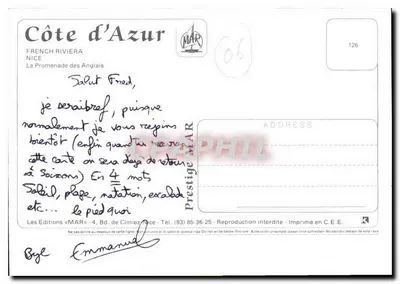 Côte d'Azur
FRENCH RIVIERA
NICE
La Promenade des Anglais
MAR
06
126
Salut Fred,
je serai bref, puisque
normalement je vous rejoins
bientôt (enfin quand tu recevras
cette carte on sera déjà de retour
à Soissons) En 4 mots
Soleil, plage, natation, escalade
etc... le pied quoi
Bye Emmanuel
Prestige MAR
ADDRESS
Les Editions «MAR» 4, Bd. de Cimiez, Nice - Tél. (93) 85-36-25 - Reproduction interdite - Imprimé en C.E.E.